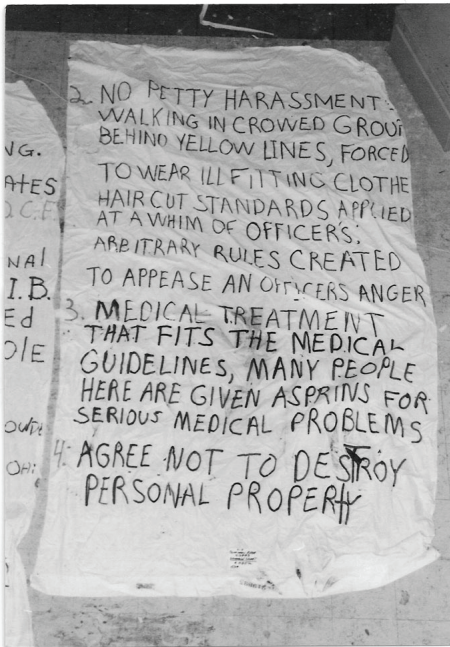 NG.
ATES
O.C.F.
NAL
I.B.
Ed
OLE
OHi
2. NO PETTY HARASSMENT:
WALKING IN CROWED GROUP
BEHIND YELLOW LINES, FORCED
TO WEAR ILL FITTING CLOTHE
HAIR CUT STANDARDS APPLIED
AT A WHIM OF OFFICER'S;
ARBITRARY RULES CREATED
TO APPEASE AN OFFICERS ANGER
3. MEDICAL TREATMENT
THAT FITS THE MEDICAL
GUIDELINES, MANY PEOPLE
HERE ARE GIVEN ASPRINS FOR
SERIOUS MEDICAL PROBLEMS
4. AGREE NOT TO DESTROY
PERSONAL PROPERTY